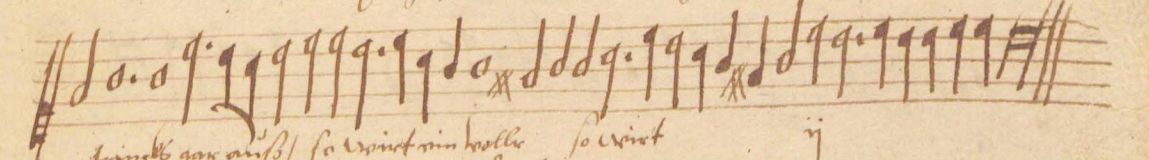 trincks gar auß / so wirt ein voller so wirt ij